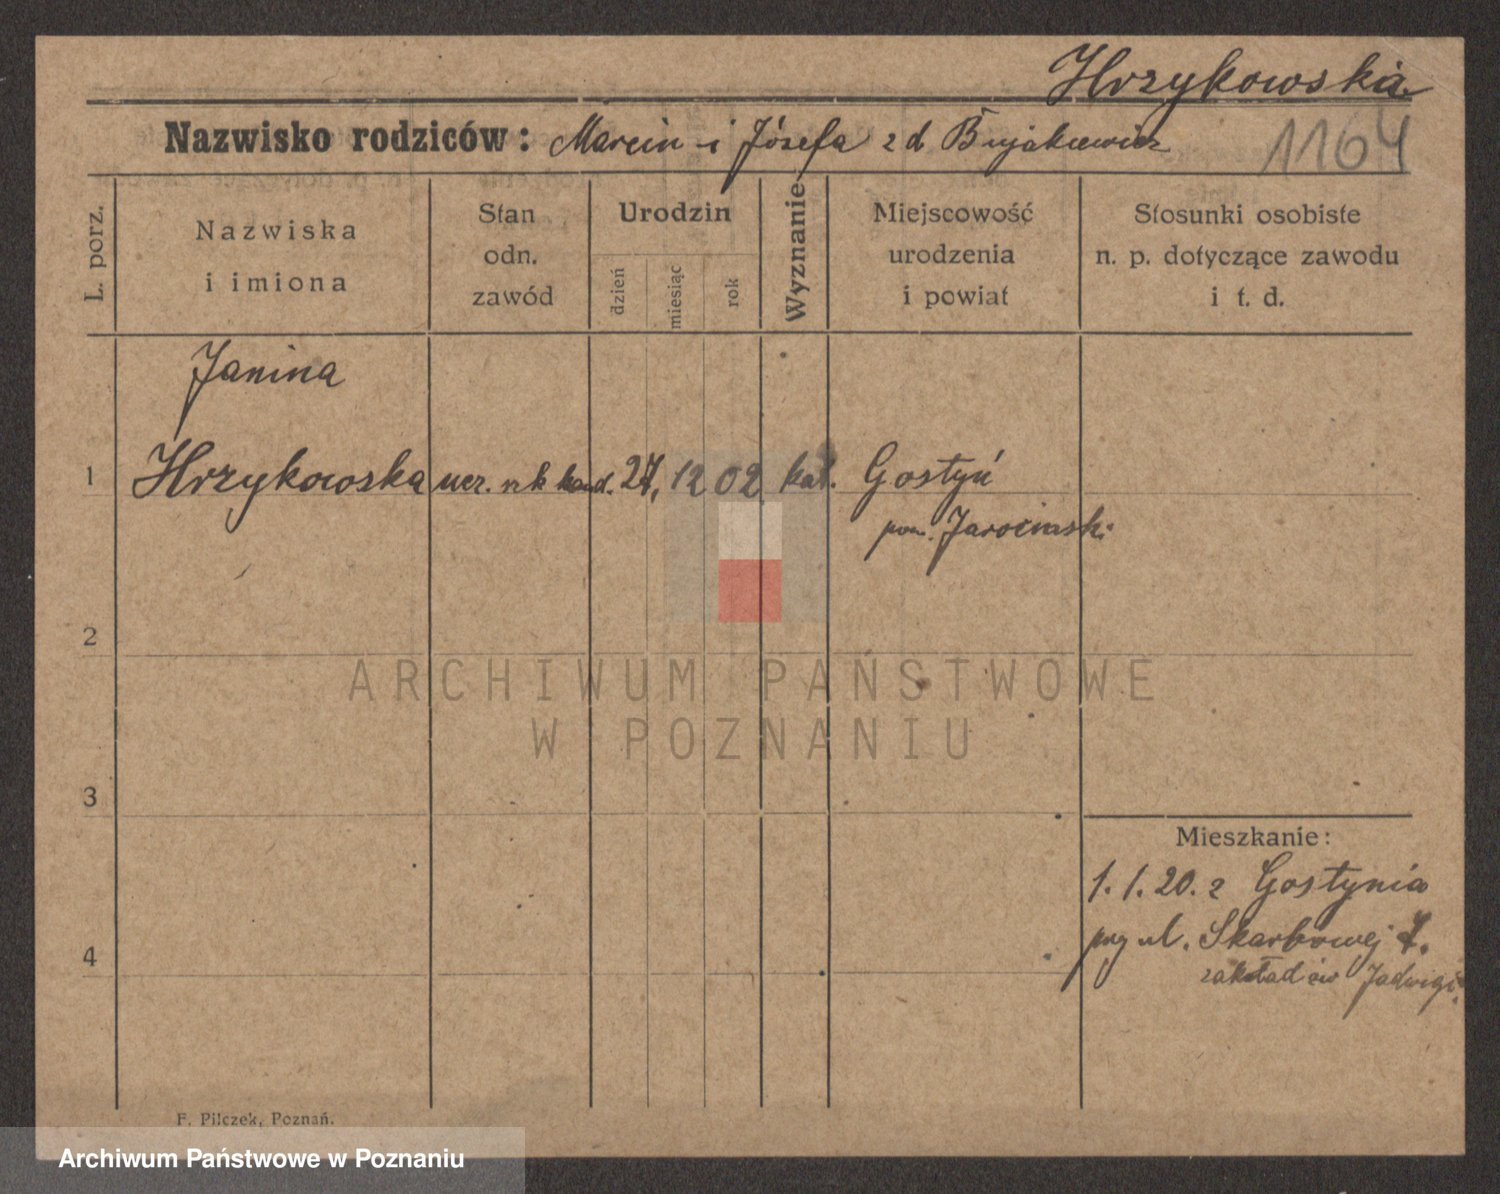 Hrzykowska
Nazwisko rodziców: Marcin i Józefa z d Bujakiewicz
1164
L. porz.
Nazwiska
i imiona
Stan
odn.
zawód
Urodzin
dzień
miesiąc
rok
Wyznanie
Miejscowość
urodzenia
i powiat
Stosunki osobiste
n. p. dotyczące zawodu
i t. d.
Janina
1 Hrzykowska ucz. 27, 12 02 kat. Gostyń
pow. Jarocinski
2
ARCHIWUM PAŃSTWOWE
W POZNANIU
3
Mieszkanie:
1. 1. 20. z Gostynia
przy ul. Skarbowej 7.
4
zakład św Jadwigi
F. Pilczek, Poznań.
Archiwum Państwowe w Poznaniu